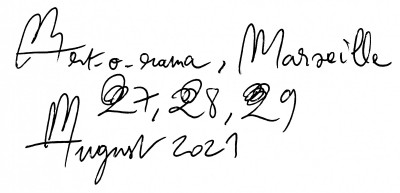 Art-o-rama, Marseille
27, 28, 29
August 2021